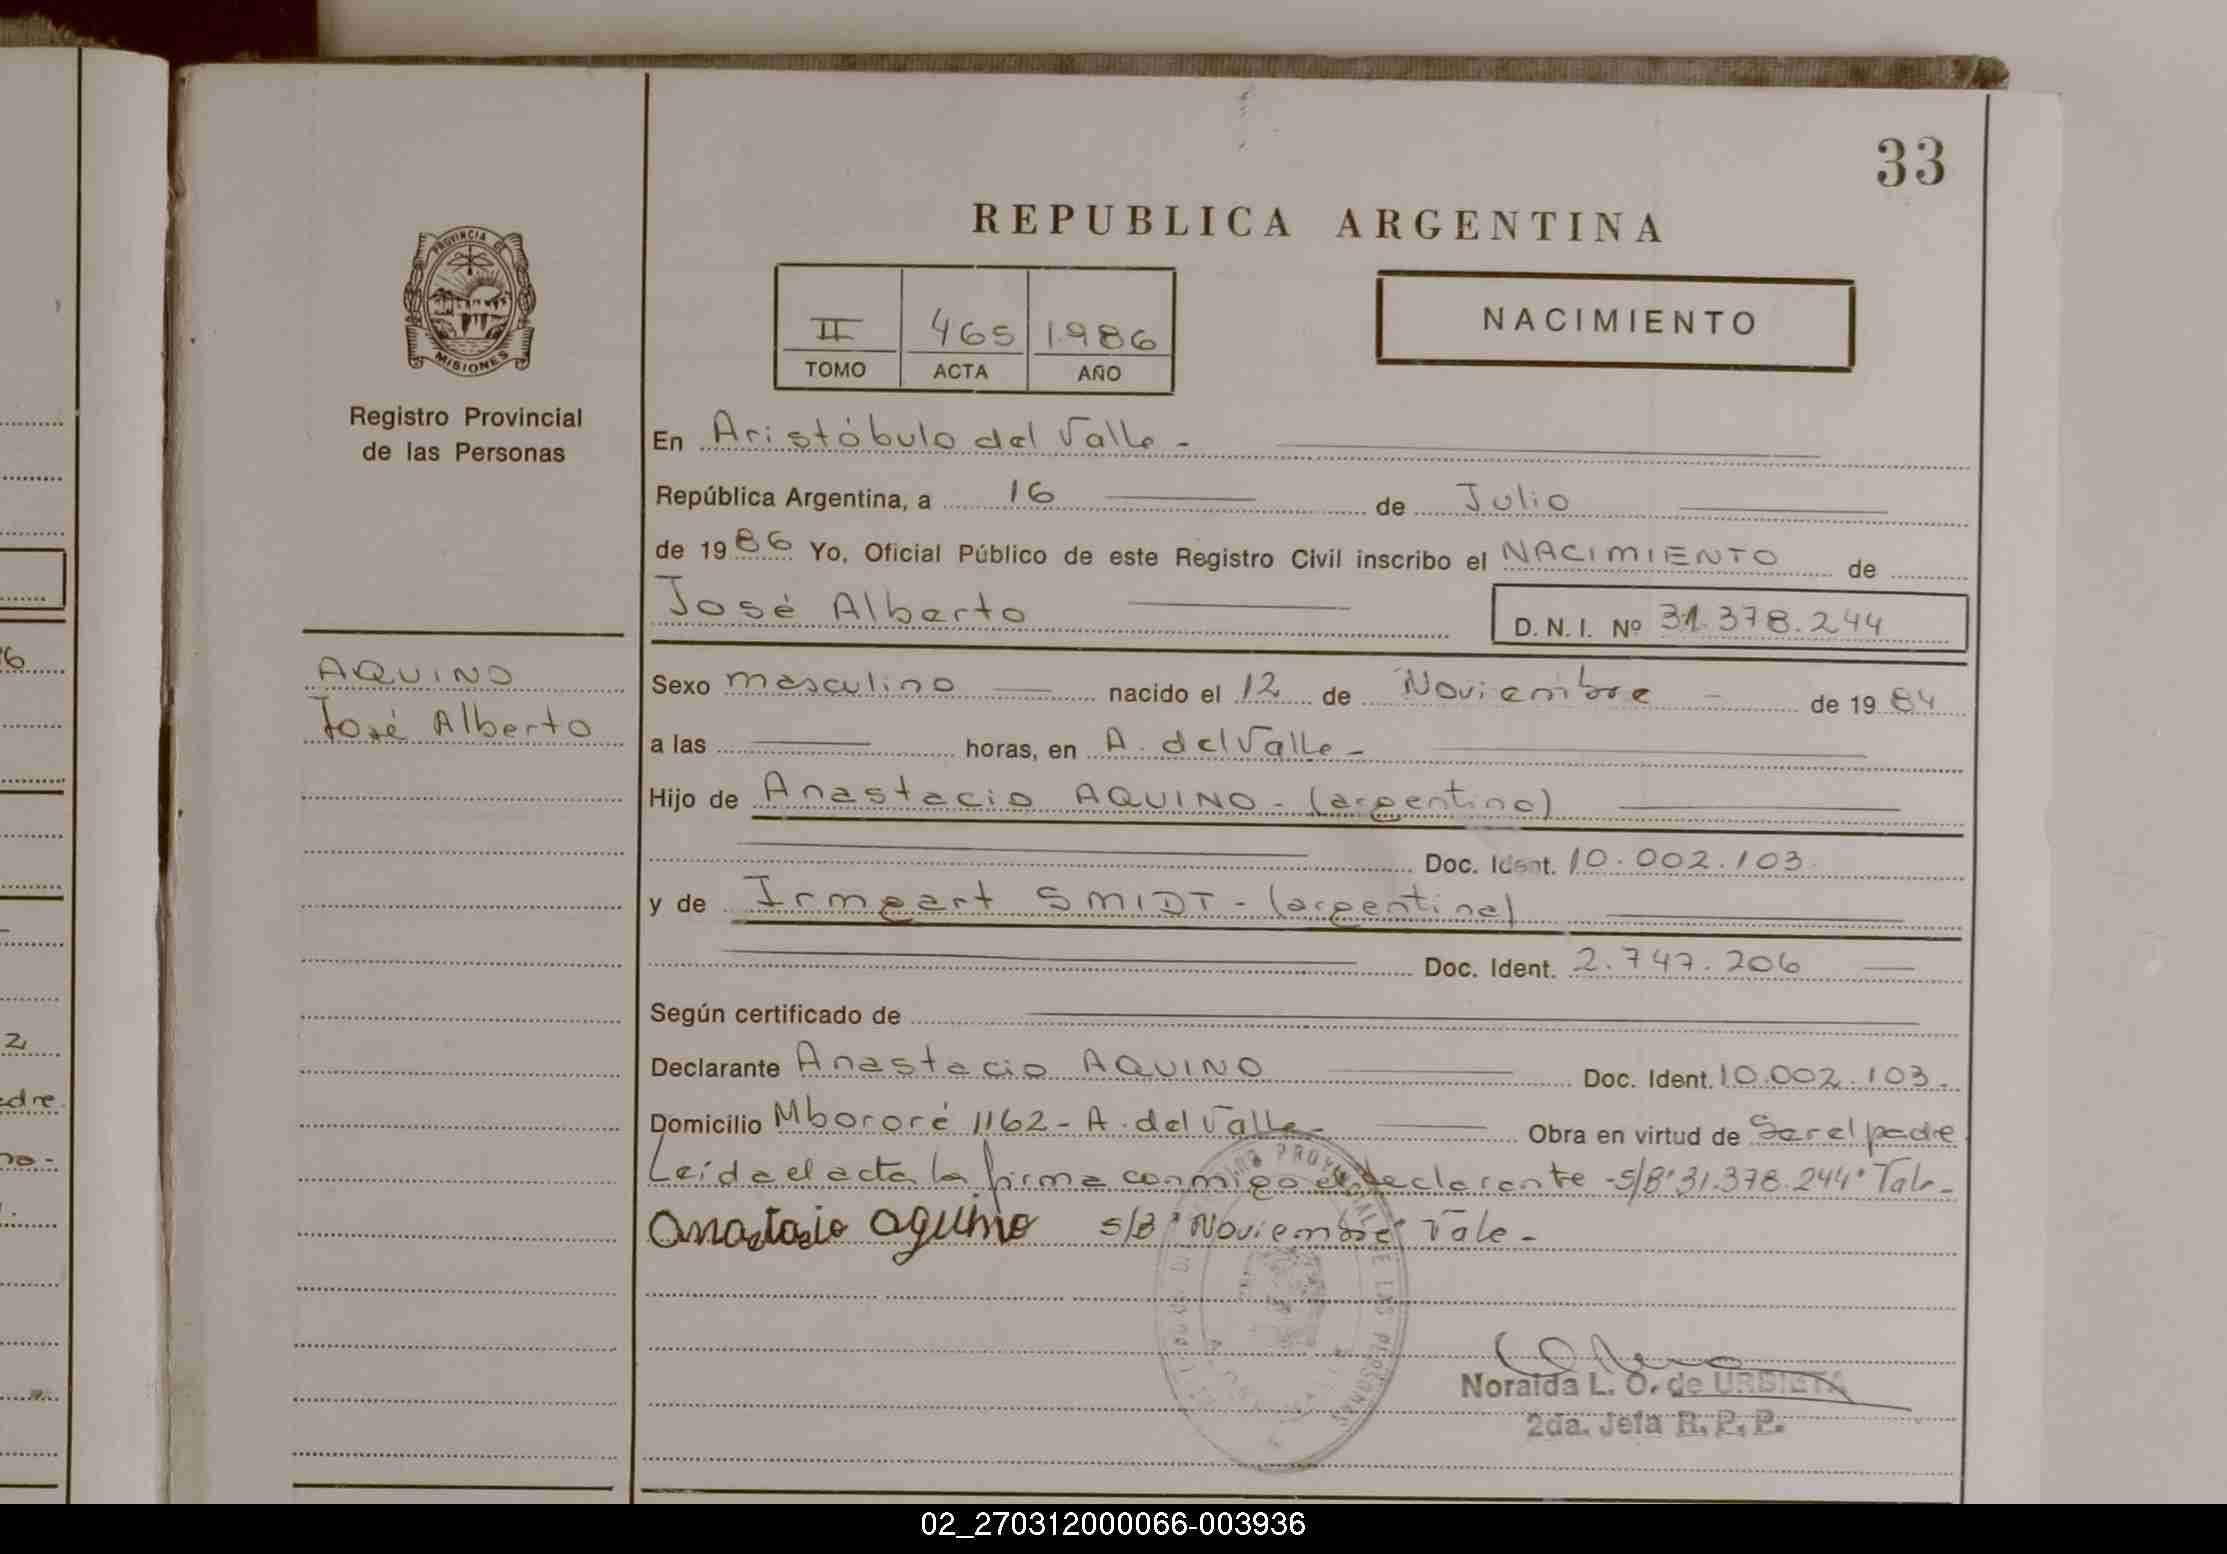 33
REPUBLICA ARGENTINA
PROVINCIA DE
MISIONES
Registro Provincial
de las Personas
II 465 1986
TOMO ACTA AÑO
NACIMIENTO
En Aristóbulo del Valle -
República Argentina, a 16 de Julio
de 1986 Yo, Oficial Público de este Registro Civil inscribo el NACIMIENTO de
José Alberto D. N. I. Nº 31.378.244
AQUINO
José Alberto
Sexo masculino nacido el 12 de Noviembre de 1984
a las horas, en A. del Valle -
Hijo de Anastacio AQUINO - (argentino)
Doc. Ident. 10.002.103
y de Irmgart SMIDT - (argentina)
Doc. Ident. 2.747.206
Según certificado de
Declarante Anastacio AQUINO Doc. Ident. 10.002.103 -
Domicilio Mbororé 1162 - A. del Valle - Obra en virtud de Ser el padre
Leída el acta la firma conmigo el declarante - S/B "31.378.244" Vale -
Anastasio aquino S/B "Noviembre" Vale -
Noraida L. O. de URBIETA
2da. Jefa R. P. P.
6
2
edre
no -
02_270312000066-003936